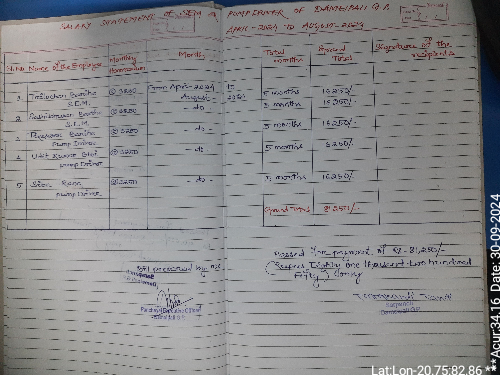 SALARY STATEMENT OF SEM & PUMP DRIVER OF DAMEIPALI G.P.
APRIL-2024 TO AUGUST-2024
Sl.No Name of the Employee Monthly Honorarium Month Total months Grand Total Signature of the recipients
1 Trilochan Bantha @3250 From April-2024 to 5 months 16250/-
S.E.M. August 2024
2 @3250 -do- 5 months 16250/-
S.E.M.
3 Bantha @3250 -do- 5 months 16250/-
Pump Driver
4 Kumar @3250 -do- 5 months 16250/-
Pump Driver
5 Rana @3250 -do- 5 months 16250/-
Pump Driver
Grand Total 81250/-
Passed for payment of Rs-81,250/-
(Rupees Eighty one thousand two hundred
Fifty) only
Bill prepared by me
Panchayat Executive Officer
Sarpanch
Lat:Lon-20.75:82.86 **Acur:34.16 Date: 30-09-2024